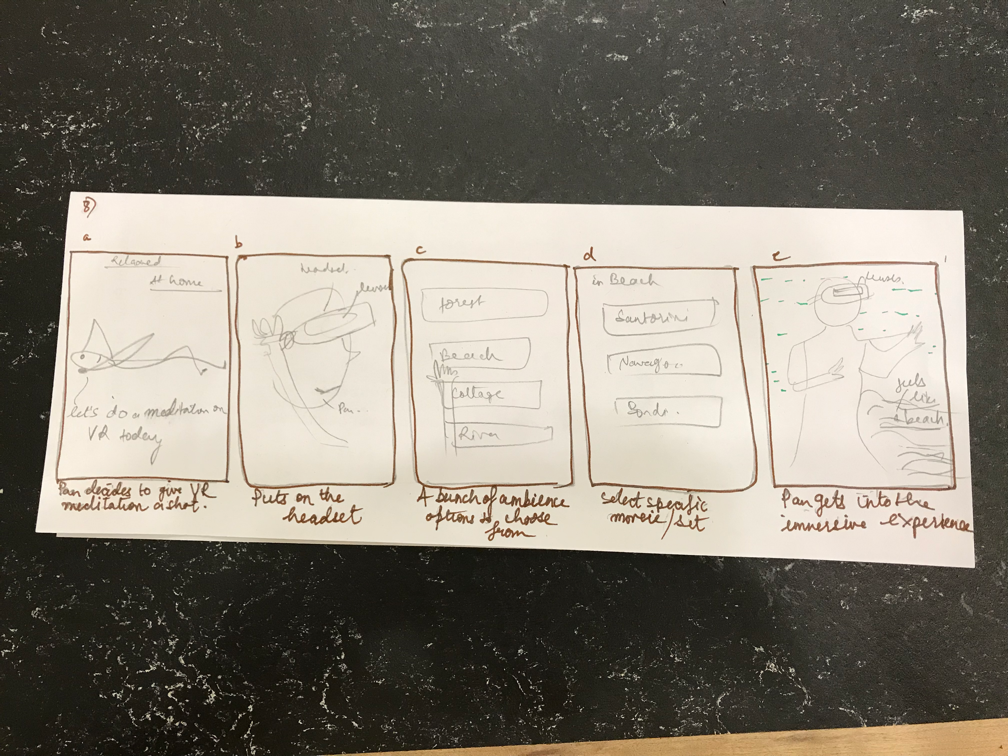 B)
a
Relaxed
At home
let's do a meditation on
VR today
Pan decides to give VR
meditation a shot.
b
headset
Pan.
Puts on the
headset
c
forest
Beach
Cottage
River
A bunch of ambience
options to choose
from
d
In Beach
Santorini
Select specific
set
e
feels
like
a beach.
Pan gets into the
immersive experience